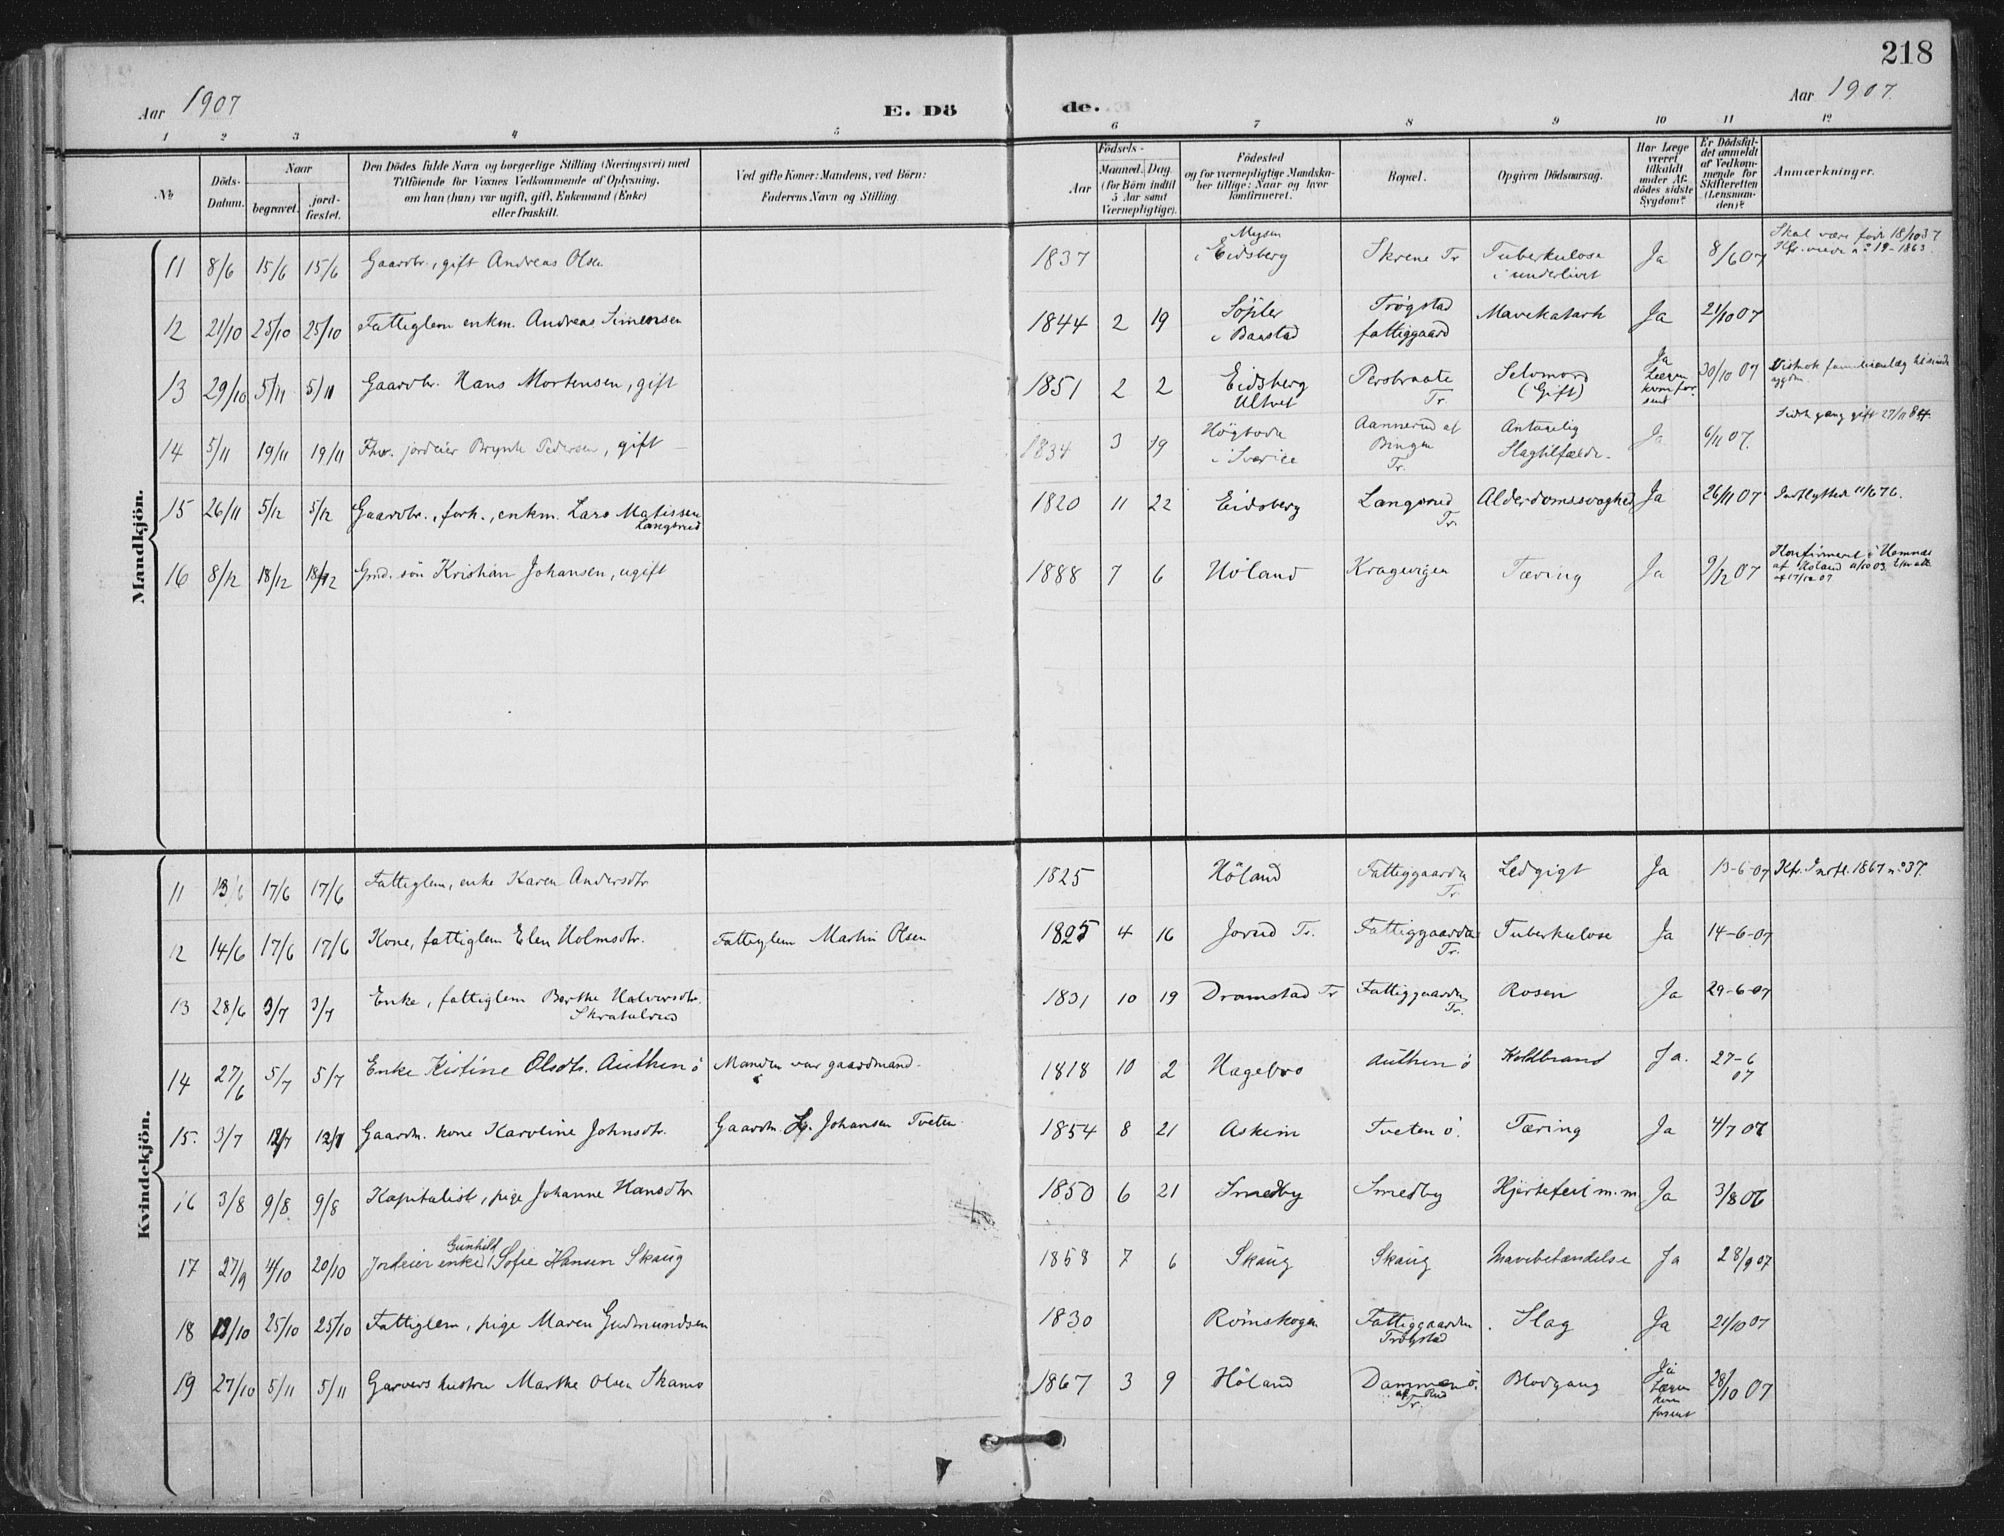 218
Aar 1907
E. Dö
de.
Aar 1907.
1 2 3 4 5 6 7 8 9 10 11 12
No
Döds-
Datum.
Naar
begravet.
jord-
fæstet.
Den Dödes fulde Navn og borgerlige Stilling (Næringsvei) med
Tilföiende for Voxnes Vedkommende af Oplysning,
om han (hun) var ugift, gift, Enkemand (Enke)
eller fraskilt.
Ved gifte Koner: Mandens, ved Börn:
Faderens Navn og Stilling.
Födsels-
Aar
Maaned. Dag.
(for Börn indtil
5 Aar samt
Værnepligtige).
Födested
og for værnepligtige Mandska-
ber tillige: Naar og hvor
konfirmeret.
Bopæl.
Opgiven Dödsaarsag.
Har Læge
været
tilkaldt
under Af-
dödes sidste
Sygdom?
Er Dödsfal-
det anmeldt
af Vedkom-
mende for
Skifteretten
(Lensman-
den)?
Anmærkninger.
Mandkjön.
11 8/6 15/6 15/6 Gaardbr., gift Andreas Olsen 1837 Mysen i Eidsberg Skrene Tr Tuberkulose i underlivet Ja 8/6 07 Skal være født 18/10 37 Kfr. viede no 19-1863.
12 21/10 25/10 25/10 Fattiglem enkm. Andreas Simensen 1844 2 19 Söpler i Baastad Trøgstad fattiggaard Mavekatarh Ja 21/10 07
13 29/10 5/11 5/11 Gaardbr. Hans Mortensen, gift 1851 2 2 Eidsberg Ultvet Persbraate Tr. Selvmord (Gift) Ja Lægen kom for sent 30/10 07
14 5/11 19/11 19/11 Fhv. jordeier Brynte Pedersen, gift 1834 3 19 Högboda i Sverige Aannerud af Bingen Tr. Antagelig Slagtilfælde. Ja 6/11 07. gang gift 27/11 84.
15 26/11 5/12 5/12 Gaardbr., forh., enkm. Lars Matissen Langsrud 1820 11 22 Eidsberg Langsrud Tr. Alderdomssvaghed Ja 26/11 07 Indflyttet 11/6 76.
16 8/12 18/12 18/12 Grd. sön Kristian Johansen, ugift 1888 7 6 Höland Kragvigen Tæring Ja 9/12 07 Konfirmeret i Hemnæs af Høland 11/10 03. af 17/12 07.
Kvindekjön.
11 13/6 17/6 17/6 Fattiglem, enke Karen Andersdtr 1825 Höland Fattiggaarden Tr. Ledgigt Ja 13-6-07 Kfr. Indfl. 1867 no 37.
12 14/6 17/6 17/6 Kone, fattiglem Elen Holmsdtr. Fattiglem Martin Olsen 1825 4 16 Jorud Tr. Fattiggaarden Tr. Tuberkulose Ja 14-6-07
13 28/6 3/7 3/7 Enke, fattiglem Berthe Halvorsdtr. 1831 10 19 Dramstad Tr Fattiggaarden Tr. Rosen Ja 29-6-07
14 27/6 5/7 5/7 Enke Kistine Olsdtr. Authen ö Manden var gaardmand. 1818 10 2 Hagebro Authen ö Koldbrand Ja. 27-6 07
15. 3/7 12/7 12/7 Gaardm. kone Karoline Johnsdtr. Gaardm. Johansen Tveten 1854 8 21 Askim Tveten ö. Tæring Ja 4/7 07
16 3/8 9/8 9/8 Kapitalist, pige Johanne Hansdtr 1850 6 21 Smedby Smedby Hjertefeil m.m Ja 3/8 06
17 27/9 4/10 20/10 Jordeier enke Gunhild Sofie Hansen Skaug 1858 7 6 Skaug Skaug Mavebetændelse Ja 28/9 07
18 13/10 25/10 25/10 Fattiglem, pige Maren Gudmundsen 1830 Römskogen Fattiggaarden Trögstad Slag Ja 21/10 07
19 27/10 5/11 5/11 Garvers hustru Marthe Olsen Skamo 1867 3 9 Höland Dammen ö. af Rud Tr. Blodgang Ja Lægen kom forsent 28/10 07